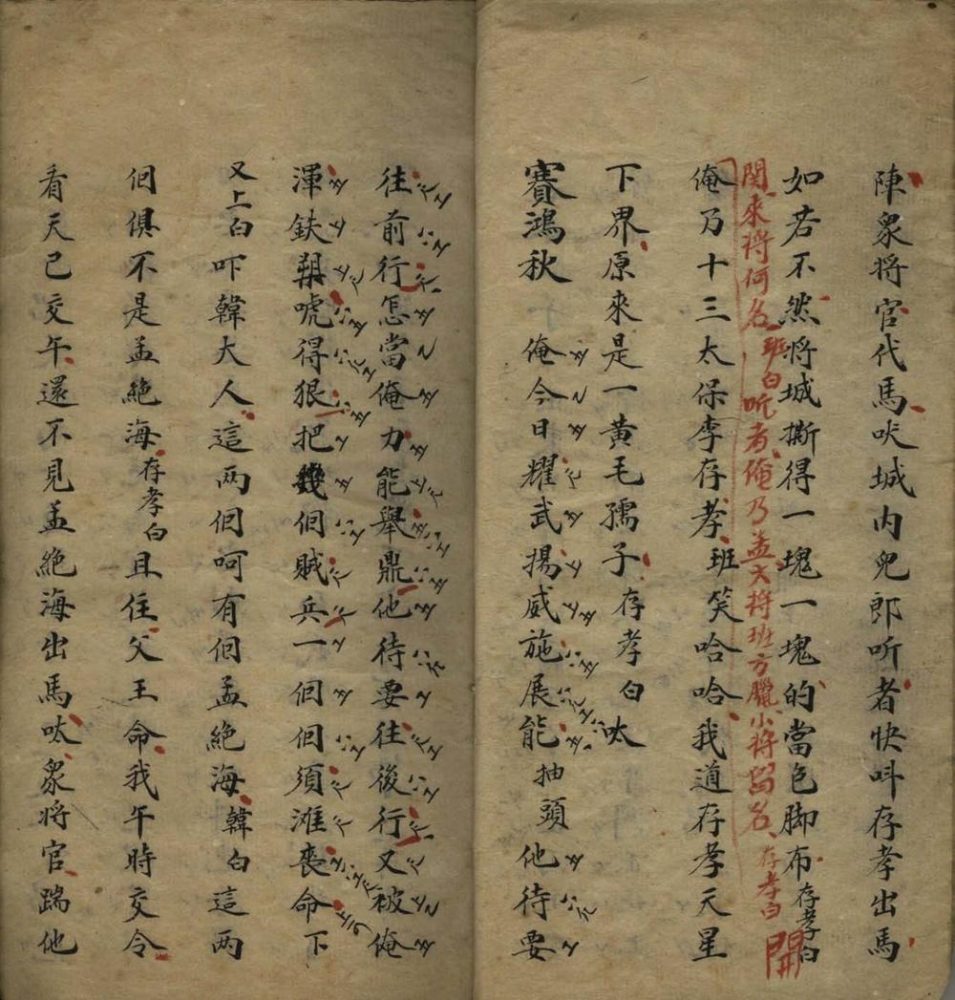 陣衆將官代馬吠城内兒郎听者快呌存孝出馬
如若不然將城撕得一塊一塊的當包脚布存孝白
関來將何名班白听者俺乃孟大將班方臘小將留名存孝白開
俺乃十三太保李存孝班笑哈哈我道存孝天星
下界原來是一黄毛孺子存孝白呔
賽鴻秋 俺今日耀武揚威施展能抽頭他待要
往前行怎當俺力能舉鼎他待要往後行又被俺
渾鉄槊唬得狠把幾個賊兵一個個須灘喪命下
又上白吓韓大人這両個呵有個孟絶海韓白這両
個俱不是孟絶海存孝白且住父王命我午時交令
看天已交午還不見孟絶海出馬呔衆將官踹他